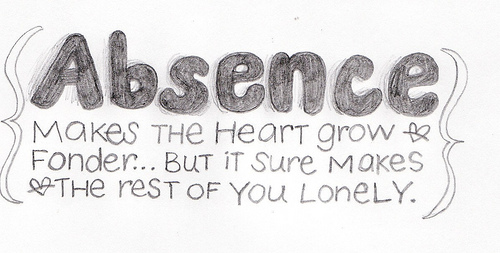 Absence
Makes THE Heart grow
Fonder... But it sure Makes
THE rest of You Lonely.